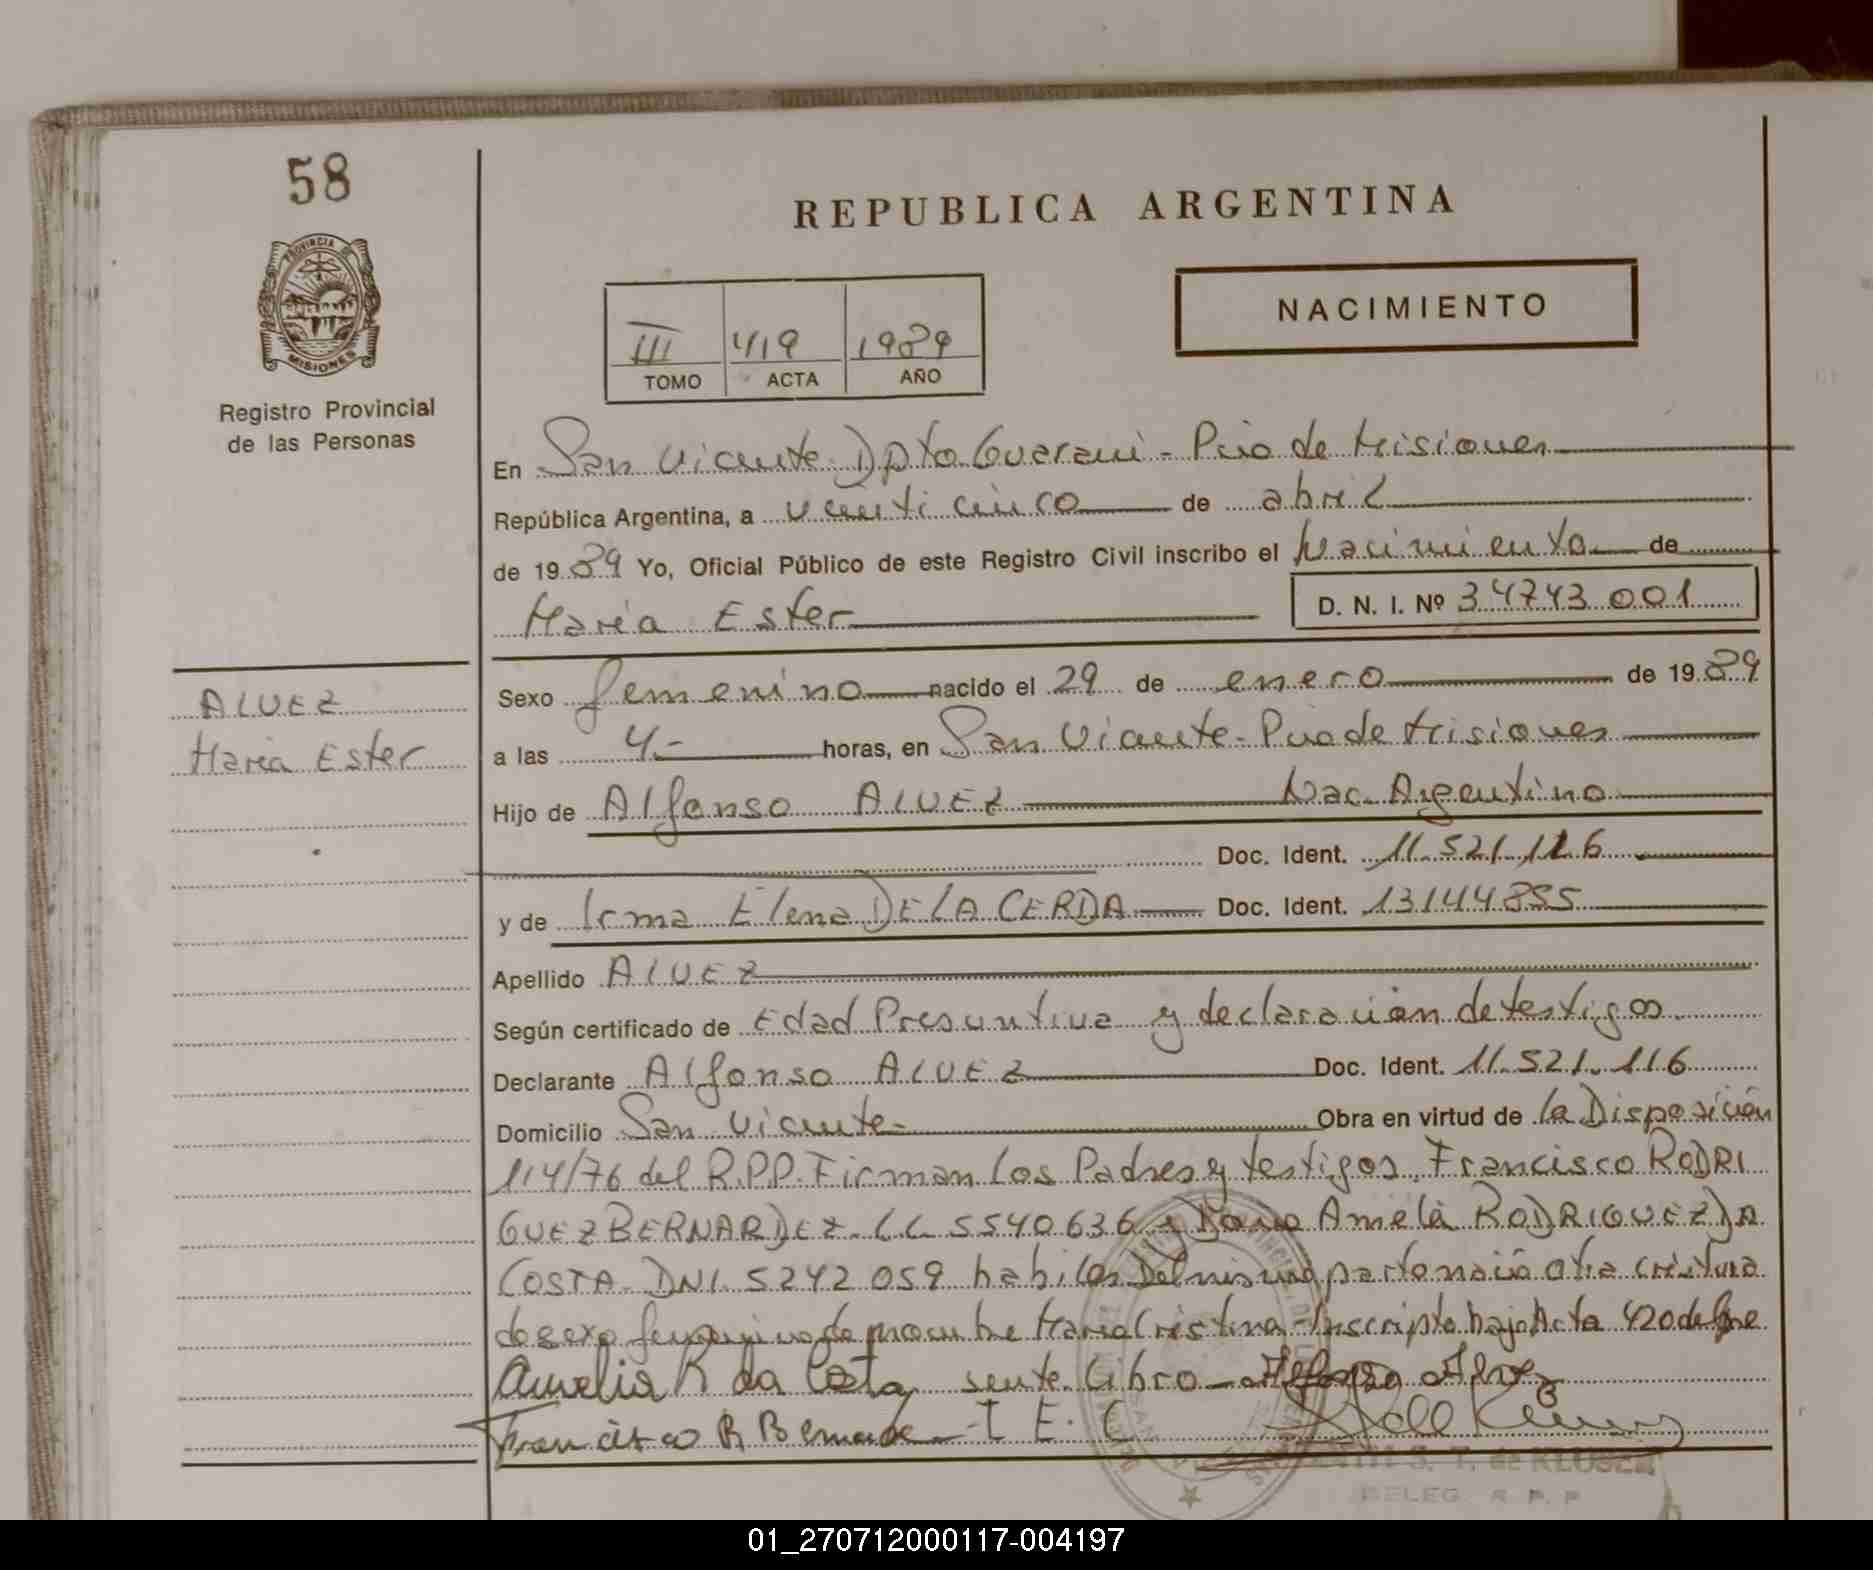 58
REPUBLICA ARGENTINA
PROVINCIA DE
MISIONES
Registro Provincial
de las Personas
III 419 1989
TOMO ACTA AÑO
NACIMIENTO
En San Vicente Dpto Guarani - Pcia de Misiones
República Argentina, a veinti cinco de abril
de 1989 Yo, Oficial Público de este Registro Civil inscribo el Nacimiento de
Maria Ester
D. N. I. Nº 34743 001
ALVEZ
Maria Ester
Sexo femenino nacido el 29 de enero de 1989
a las 4.- horas, en San Vicente - Pcia de Misiones
Hijo de Alfonso ALVEZ Nac. Argentino
Doc. Ident. 11.521.116
y de Irma Elena DE LA CERDA Doc. Ident. 13144855
Apellido ALVEZ
Según certificado de Edad Presuntiva y declaración de testigos.
Declarante Alfonso ALVEZ Doc. Ident. 11.521.116
Domicilio San Vicente - Obra en virtud de la Disposición
114/76 del R.P.P. Firman los Padres y testigos. Francisco RODRI
GUEZ BERNARDEZ. LC 5540636 y Amelia RODRIGUEZ DA
COSTA - DNI. 5242 059 habiles Del mismo parto nació otra criatura
de sexo femenino de nombre Maria Cristina - Inscripta bajo Acta 420 de pre
Amelia R da Costa sente Libro - Alfonso Alvez
Francisco R Bernarde - I E. C
S. T. de KLUSEN
DELEG. R. P. P.
01_270712000117-004197